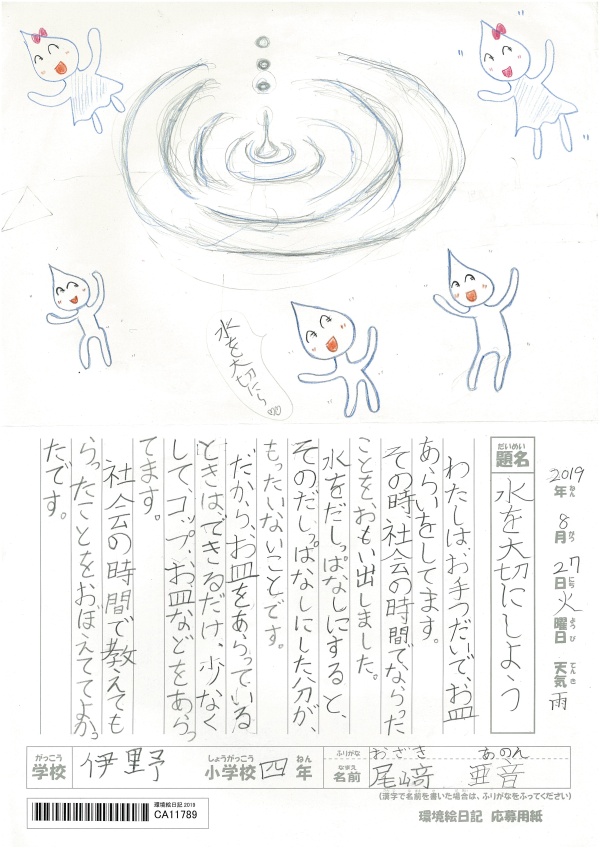 水を大切にら♡♡
2019年ねん8月がつ27日にち火曜日ようび天気てんき雨
だいめい
題名
水を大切にしよう
わたしはお手つだいで、お皿
あらいをしてます。
その時、社会の時間でならった
ことを、おもい出しました。
水をだしっぱなしにすると、
そのだしっぱなしにした分が、
もったいないことです。
だから、お皿をあらっている
ときは、できるだけ、少なく
して、コップ、お皿などをあらっ
てます。
社会の時間で教えても
らったことをおぼえててよかっ
たです。
がっこう
学校
伊野
しょうがっこう
小学校
四
ねん
年
ふりがな
おざき あのん
なまえ
名前
尾﨑 亜音
(漢字で名前を書いた場合は、ふりがなをふってください)
環境絵日記2019
CA11789
環境絵日記 応募用紙